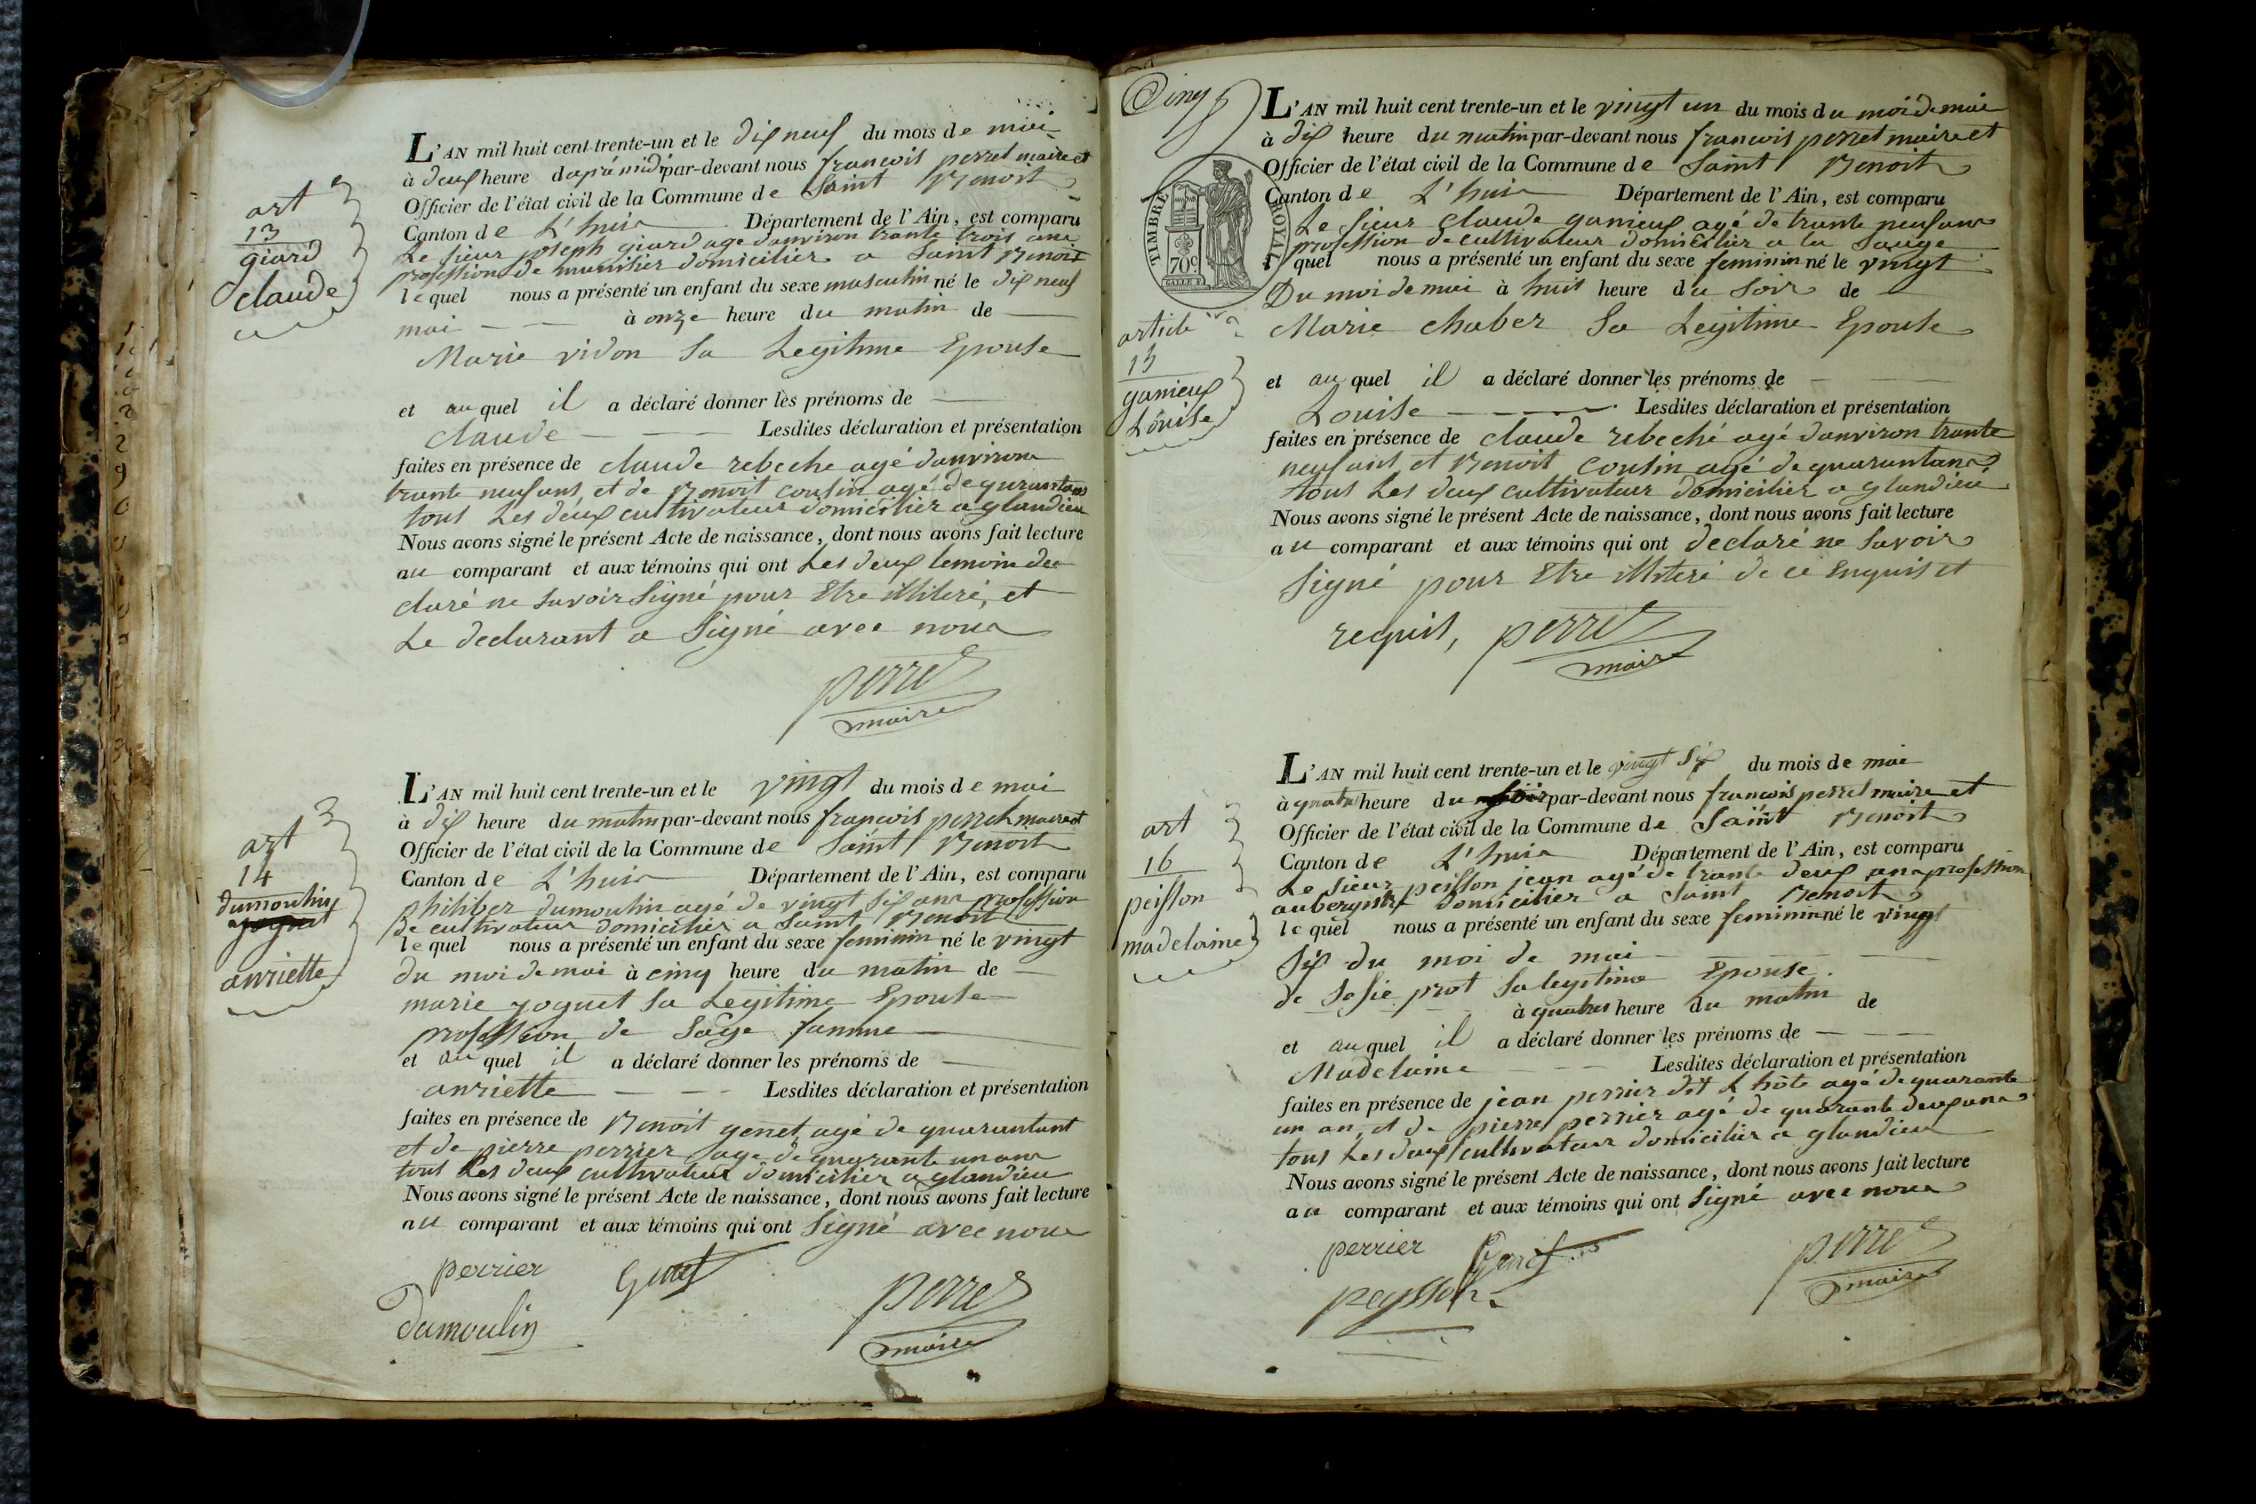 art
13
giard
claude
L'AN mil huit cent trente-un et le dix neuf du mois de mai
à deux heure daprémidi par-devant nous francois perret maire et
Officier de l'état civil de la Commune de Saint Benoit
Canton de L'huis Département de l'Ain, est comparu
Le sieur joseph giard age danviron trante trois ans
profession de munitier domicilier a Saint Benoit
lequel nous a présenté un enfant du sexe masculin né le dix neuf
mai à onze heure du matin de
Marie vidon Sa Legitime Epouse
et au quel il a déclaré donner les prénoms de
claude Lesdites déclaration et présentation
faites en présence de claude rebeche agé danviron
trante neuf ans, et de Benoit cousin agé de quarantans
tous Les deux cultivateur domicilier a glandieu
Nous avons signé le présent Acte de naissance, dont nous avons fait lecture
au comparant et aux témoins qui ont Les deux temoin de
claré ne Savoir Signé pour Etre illiteré, et
Le declarant a Signé avec nous
perret
maire
art
14
dumoulin
anriette
L'AN mil huit cent trente-un et le vingt du mois de mai
à dix heure du matin par-devant nous francois perret maire et
Officier de l'état civil de la Commune de Saint Benoit
Canton de L'huis Département de l'Ain, est comparu
philiber dumoulin agé de vingt six ans profession
de cultivateur domicilier a Saint Benoit
lequel nous a présenté un enfant du sexe feminin né le vingt
du moi de mai à cinq heure du matin de
marie yoguet Sa Legitime Epouse
profession de Sage famme
et au quel il a déclaré donner les prénoms de
anriette Lesdites déclaration et présentation
faites en présence de Benoit genet agé de quarantant
et de pierre perrier age de quarante un ans
tous Les deux cultivateur domicilier a glandieu
Nous avons signé le présent Acte de naissance, dont nous avons fait lecture
au comparant et aux témoins qui ont Signé avec nous
perrier Genet perret
dumoulin maire
Cinq
TIMBRE ROYAL
70c
article
15
ganieux
Louise
L'AN mil huit cent trente-un et le vingt un du mois du moi de mai
à dix heure du matin par-devant nous francois perret maire et
Officier de l'état civil de la Commune de Saint Benoit
Canton de L'huis Département de l'Ain, est comparu
Le sieur claude ganieux agé de trante neuf ans
profession de cultivateur domicilier a la Sauge
lequel nous a présenté un enfant du sexe feminin né le vingt
Du moi de mai à huit heure du Soir de
Marie chaber Sa Legitime Epouse
et au quel il a déclaré donner les prénoms de
Louise Lesdites déclaration et présentation
faites en présence de claude rebeché agé danviron trante
neuf ans, et Benoit cousin agé de quarantans
tous Les deux cultivateur domicilier a glandieu
Nous avons signé le présent Acte de naissance, dont nous avons fait lecture
au comparant et aux témoins qui ont declaré ne Savoir
Signé pour Etre illiteré de ce Enquis et
requis, perret
maire
art
16
peisson
madelaine
L'AN mil huit cent trente-un et le vingt Six du mois de mai
à quatre heure du soir par-devant nous francois perret maire et
Officier de l'état civil de la Commune de Saint Benoit
Canton de L'huis Département de l'Ain, est comparu
Le sieur peisson jean agé de trante deux ans profession
aubergiste domicilier a Saint Benoit
lequel nous a présenté un enfant du sexe feminin né le vingt
Six du moi de mai
de Sosie prot Sa legitime Epouse.
à quatres heure du matin de
et au quel il a déclaré donner les prénoms de
Madelaine Lesdites déclaration et présentation
faites en présence de jean perrier dit L'hôte agé de quarante
un an, et de pierre perrier agé de quarante deux ans
tous Les deux cultivateur domicilier a glandieu
Nous avons signé le présent Acte de naissance, dont nous avons fait lecture
au comparant et aux témoins qui ont Signé avec nous
perrier perret
peysson maire